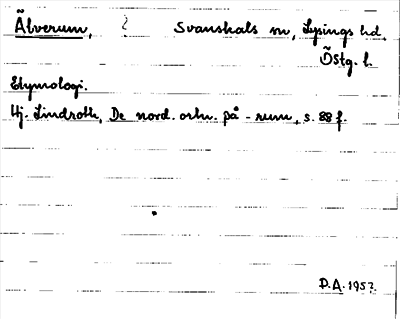 Älverum, Svanshals sn, Lysings hd,
Östg. l.
Etymologi.
Hj. Lindroth, De nord. ortn. på -rum, s. 88 f.
D.A. 1957.